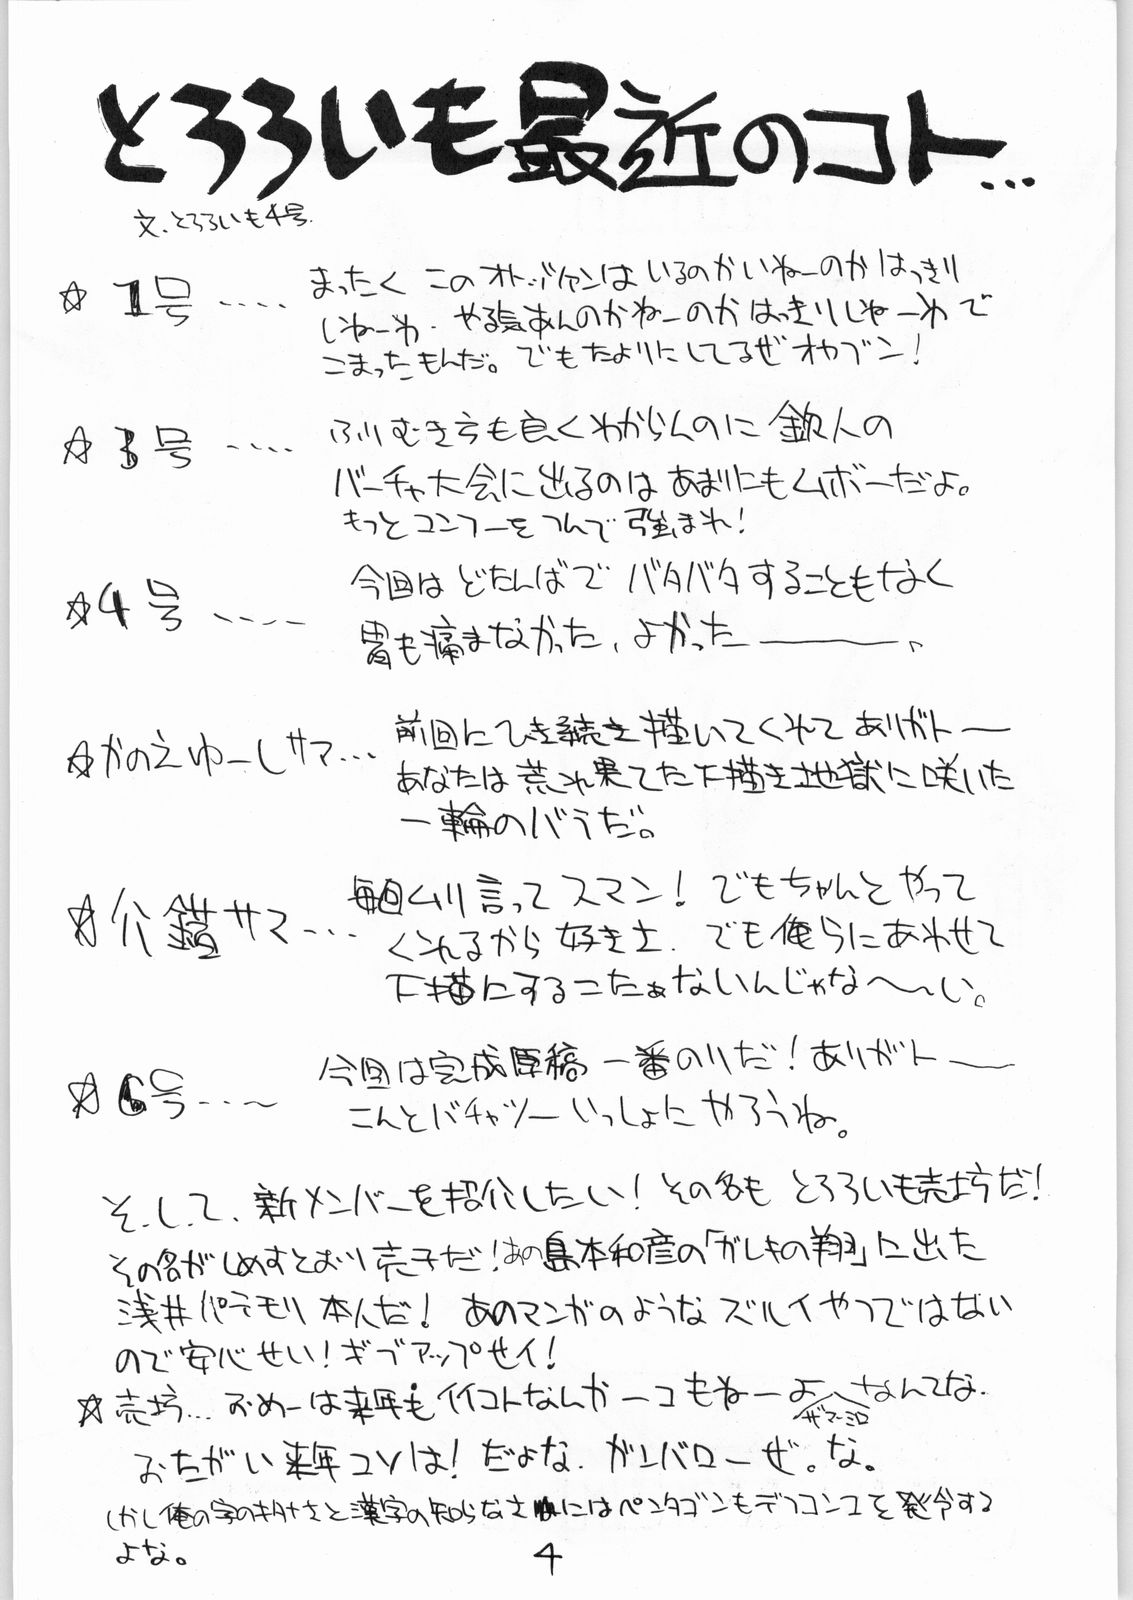 とろろいも最近のコト…
文、とろろいも4号.
☆1号‥‥ まったく このオトッツァンは いるのかいねーのか はっきり
しねーわ. やる気あんのかねーのか はっきりしねーわ で
こまったもんだ。でもたよりにしてるぜ オヤブン!
☆3号‥‥ ふりむき方も良くわからんのに 鉄人の
バーチャ大会に出るのは あまりにもムボーだよ。
もっとコンフーをつんで 強まれ!
☆4号‥‥ 今回は どたんばで バタバタすることもなく
胃も痛まなかった、よかった―――、
☆かのえゆーしサマ… 前回にひき続き 描いてくれて ありガトー
あなたは 荒れ果てた下描き地獄に咲いた
一輪のバラだ。
☆介錯サマ… 毎回ムリ言って スマン! でもちゃんと やって
くれるから 好きさ. でも俺らにあわせて
下描にするこたぁないんじゃな～～い。
☆6号‥‥ 今回は完成原稿 一番のりだ! ありガトー
こんどバチャツーいっしょに やろうね。
そ.し.て、新メンバーを紹介したい! その名も とろろいも売坊だ!
その名がしめすとおり 売子だ! あの島本和彦の「ガレキの翔」に出た
浅井パラモリ本人だ! あのマンガのような ズルイやつではない
ので安心せい! ギブアップせイ!
☆売坊… おめーは来年も イイコトなんか 一コもねーよ なんてな.
ザマーミロ
おたがい来年コソは! だよな. ガンバローぜ。な。
しかし俺の字のキタナさと漢字の知らなさにはペンタゴンもデフコン2を発令する
よな。
4